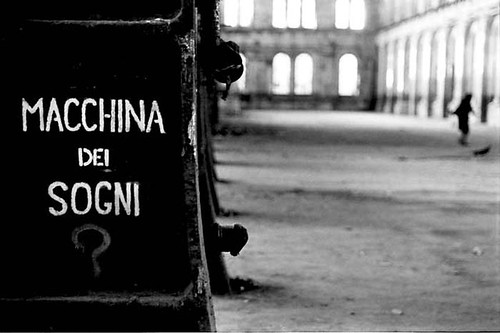 MACCHINA
DEI
SOGNI
?